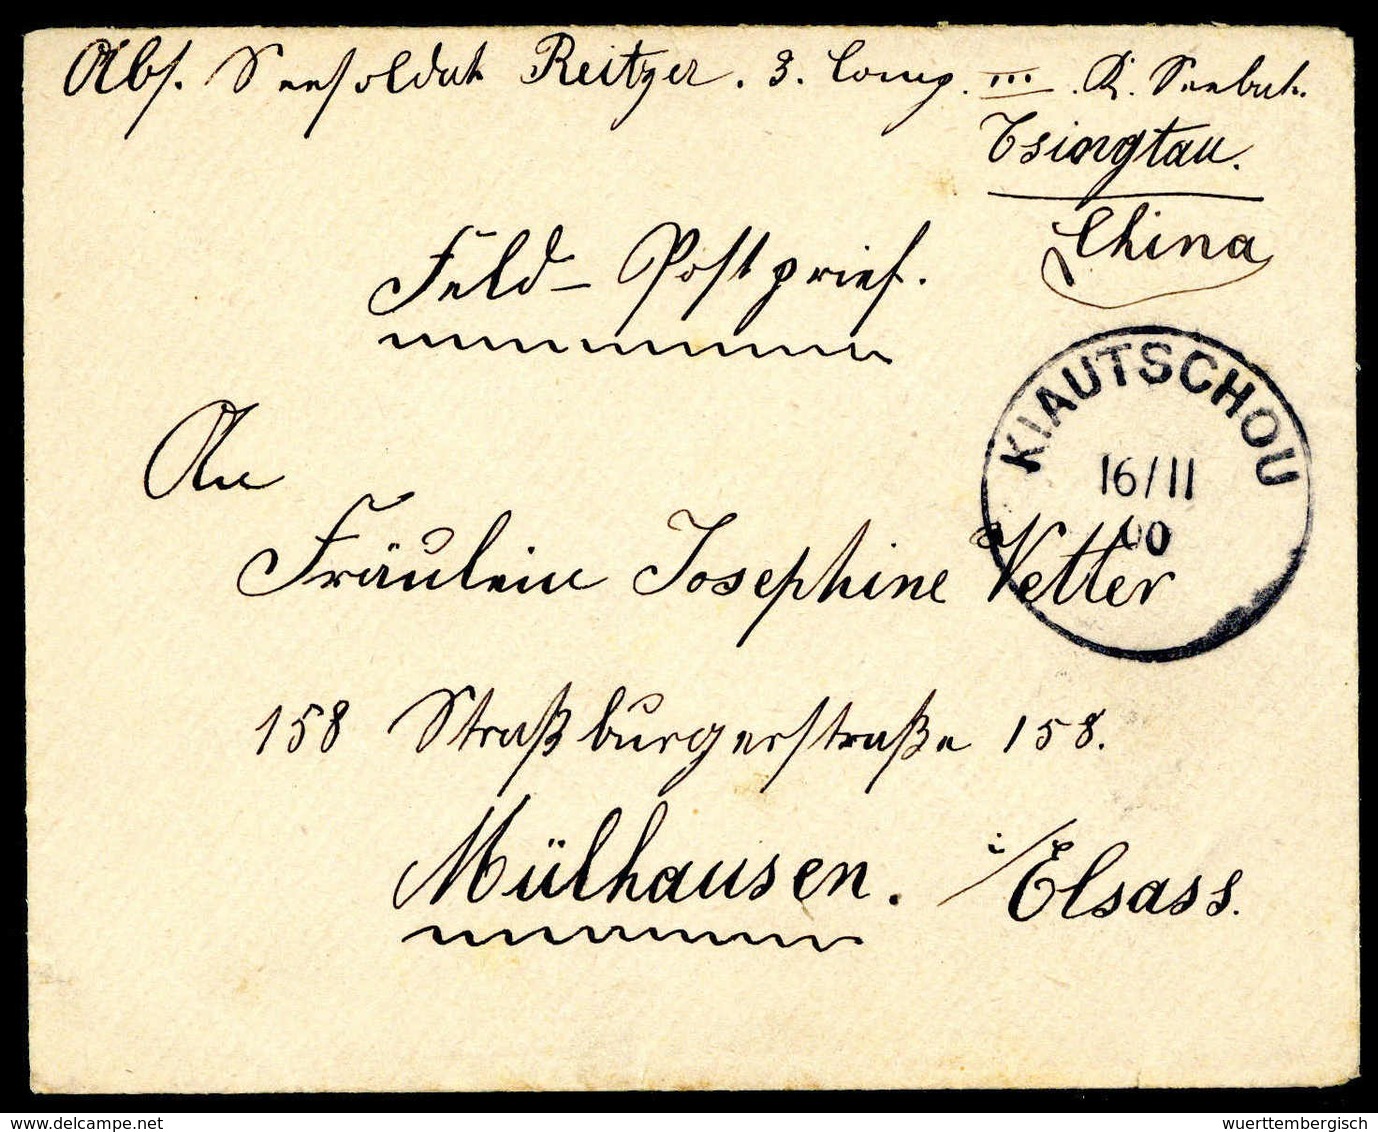 Abs. Seesoldat Reitzer. 3. Comp. III. K. Seebat.
Tsingtau.
China
Feld-Postprief.
KIAUTSCHOU
16/11
00
An
Fräulein Josephine Vetter
158 Straßburgerstraße 158.
Mülhausen. i/Elsass.
www.delcampe.net
wuerttembergisch